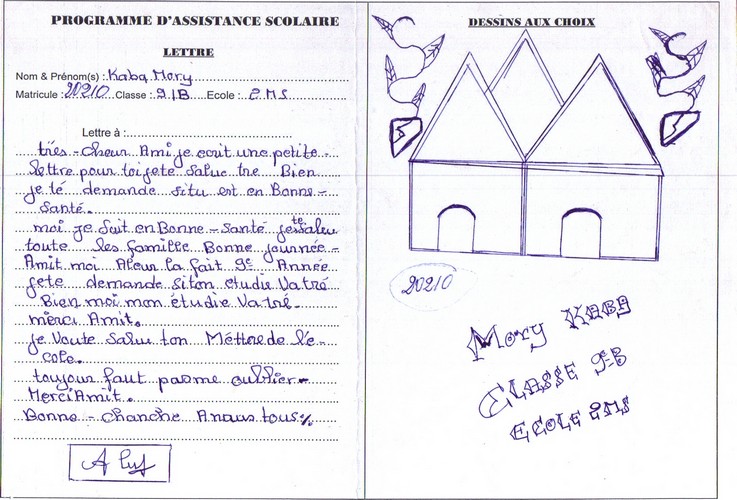 PROGRAMME D'ASSISTANCE SCOLAIRE
LETTRE
Nom & Prénom(s) : Kaba Mory
Matricule : 20210 Classe : 9/B Ecole : 2MS
Lettre à :
très-cheur Ami je ecrit une petite
lettre pour toi je te Salue tre Bien
je té demande si tu est en Bonne-
Santé.
moi je Suit en Bonne-Santé je te Salue
toute les famille Bonne journée-
Amit moi Aleur la fait 9e Année
je te demande si ton etudie Va tré
Bien moi mon étudie Va tré
merci Amit.
je Voute Salue ton Mèttre de l'é-
cole.
toujour faut pas me oublier-
Merci Amit.
Bonne-chanche A nous tous
DESSINS AUX CHOIX
20210
Mory KABA
CLASSE 9e B
ECOLE 2MS